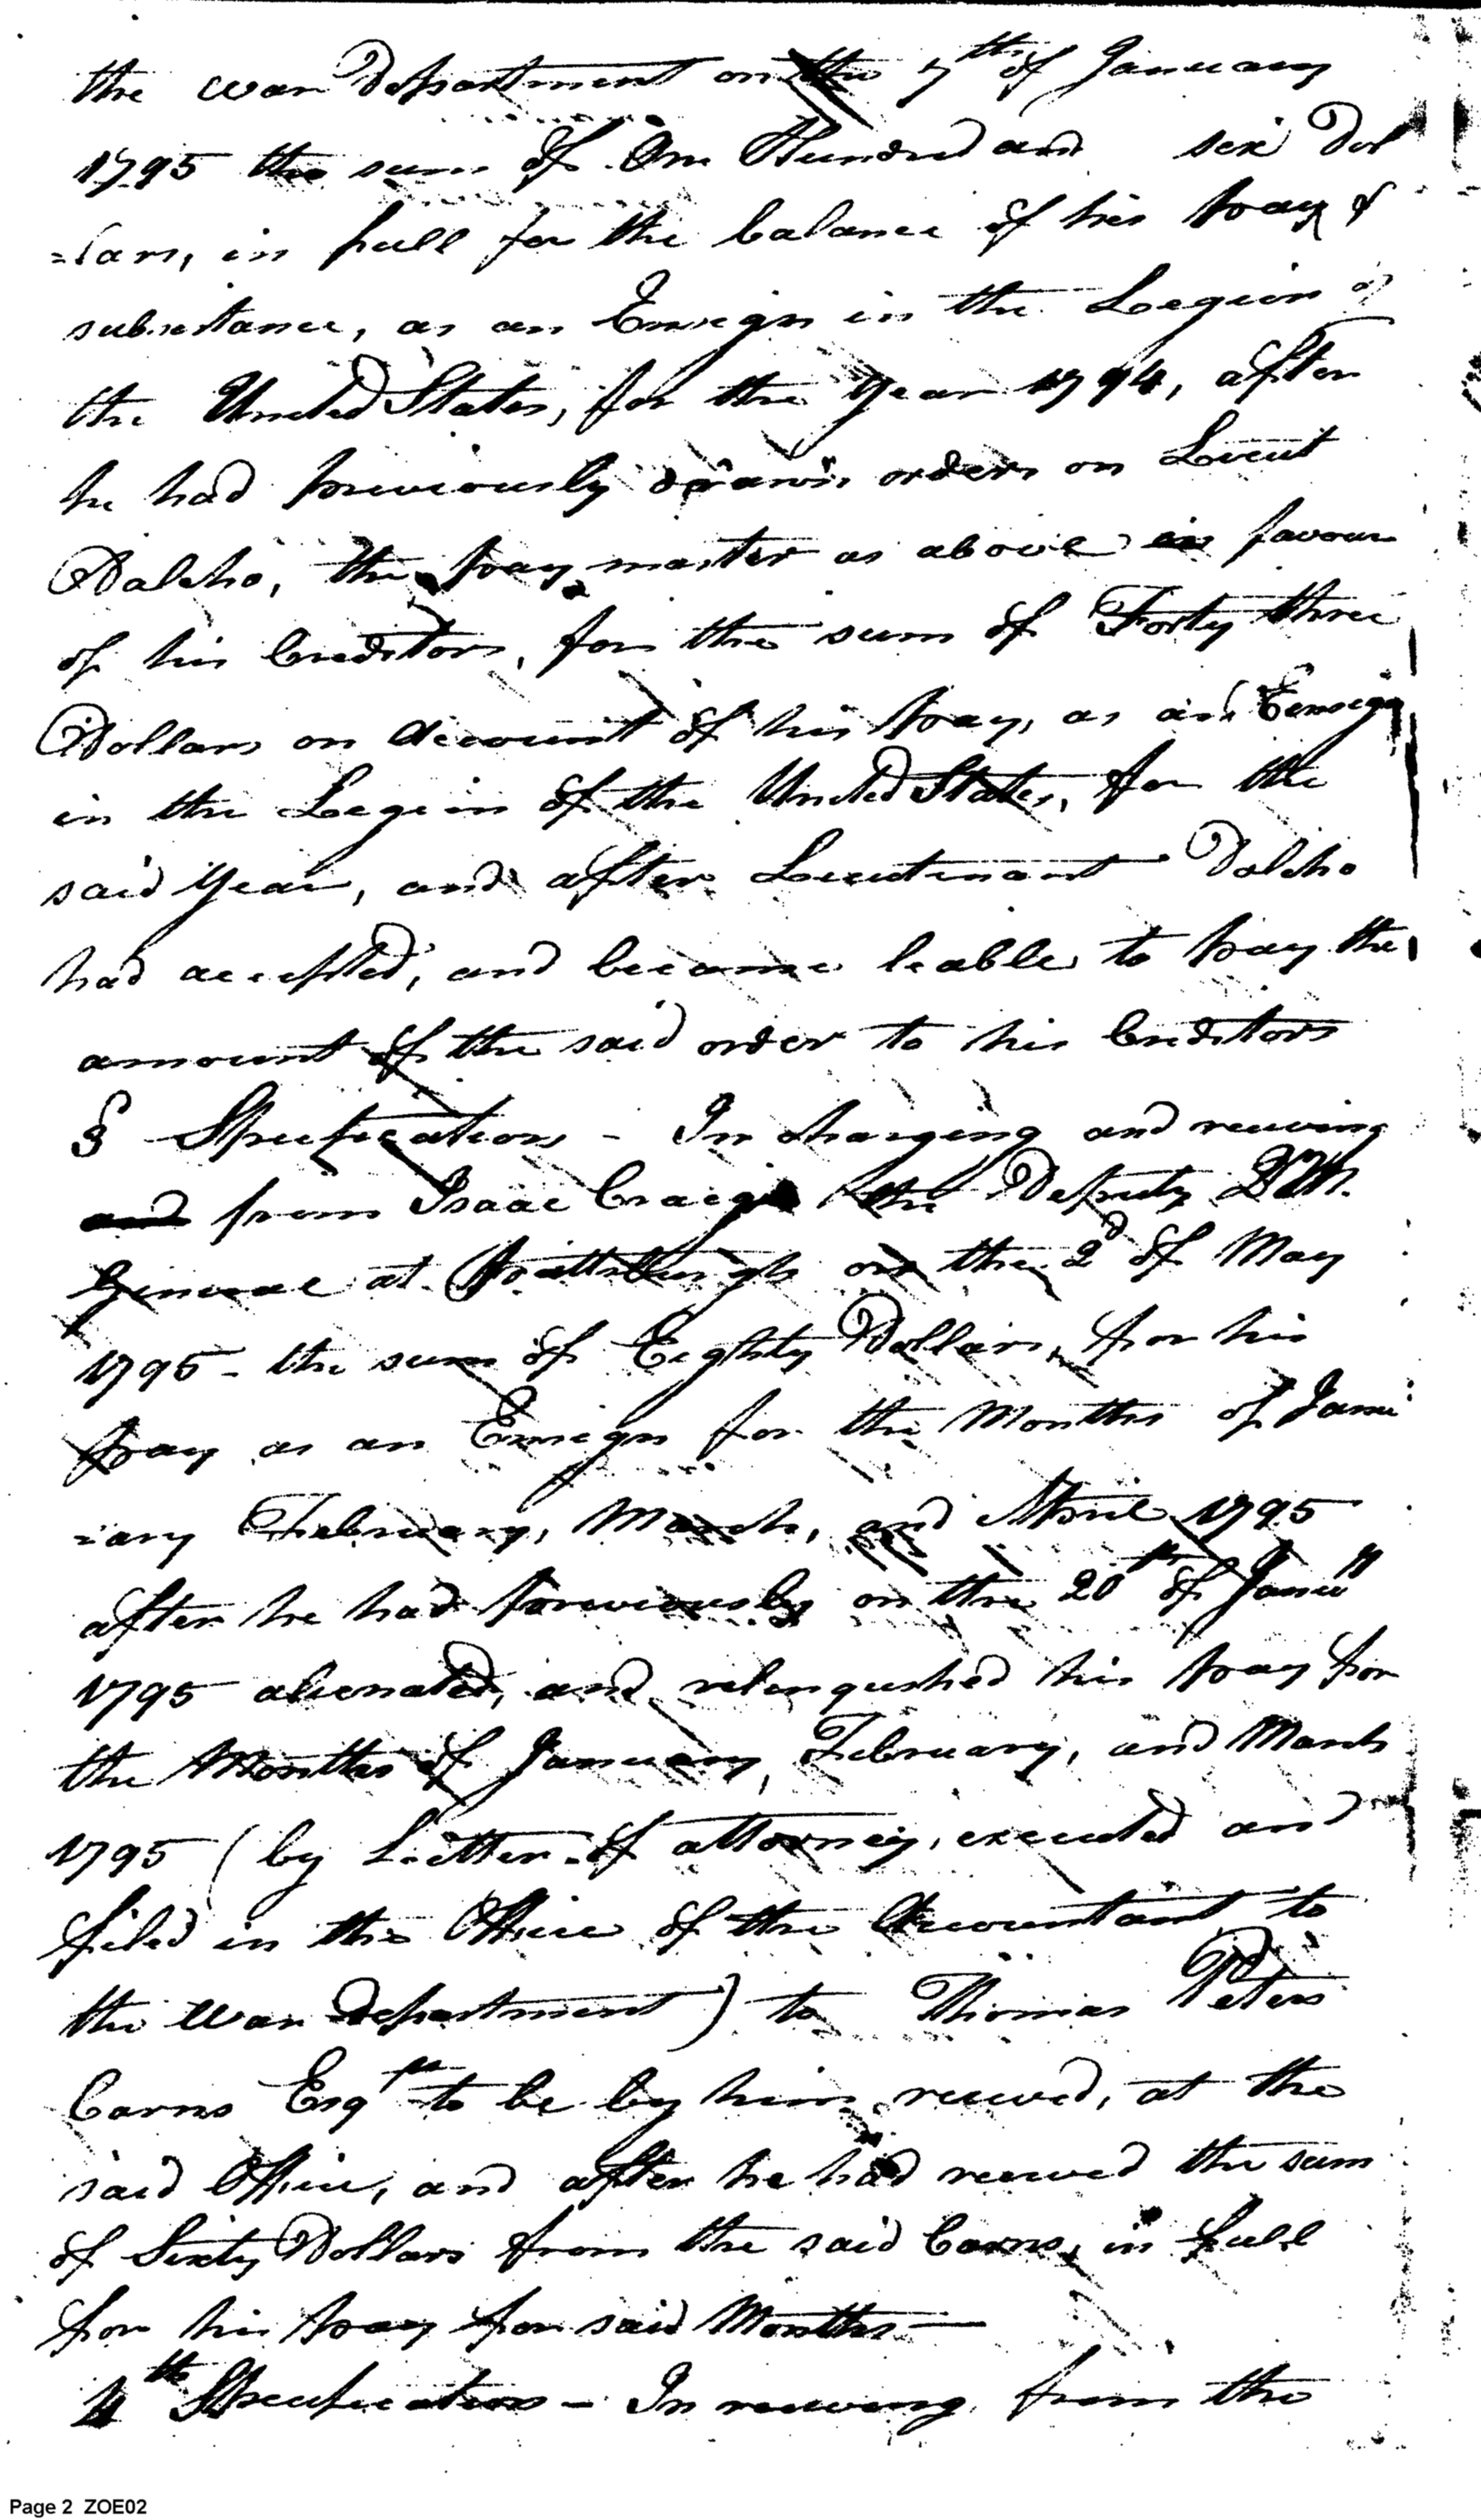 the war Department on the 7th of January
1795 the sum of One Hundred and six Dol
=lars, in full for the balance of his pay &
subsistance, as an Ensign in the Legion of
the United States, for the year 1794, after
he had previously drawn orders on Lieut
Dalcho, the pay master as above in favour
of his Creditors, for the sum of Forty three
Dollars on account of his pay, as an Ensign
in the Legion of the United States, for the
said year, and after Lieutenant Dalcho
had accepted, and became leable to pay the
amount of the said order to his Creditors
3 Specification - In charging and receiving
and from Isaac Craig the Deputy Q M.
General at Pittsburgh on the 2d of May
1795 - the sum of Eighty Dollars, for his
pay as an Ensign for the Months of Janu
=ary February, March, and April 1795
after he had previously on the 20th of Janu"
1795 alienated, and relinqushed his pay for
the Months of January, February, and March
1795 (by Letter of attorney, executed and
filed in the Office of the Accountant to
the War department) to Thomas Peters
Carns Esqr to be by him received, at the
said Office, and after he had received the sum
of Sixty Dollars from the said Carns, in full
for his pay for said Months —
4th Specification - In receiving from the
Page 2 ZOE02